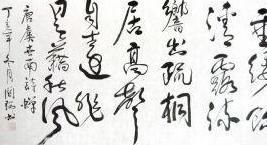 垂緌飲
清露流
響出疏桐
居高聲
自遠非
是藉秋風
唐虞世南詩蟬
丁亥年冬月